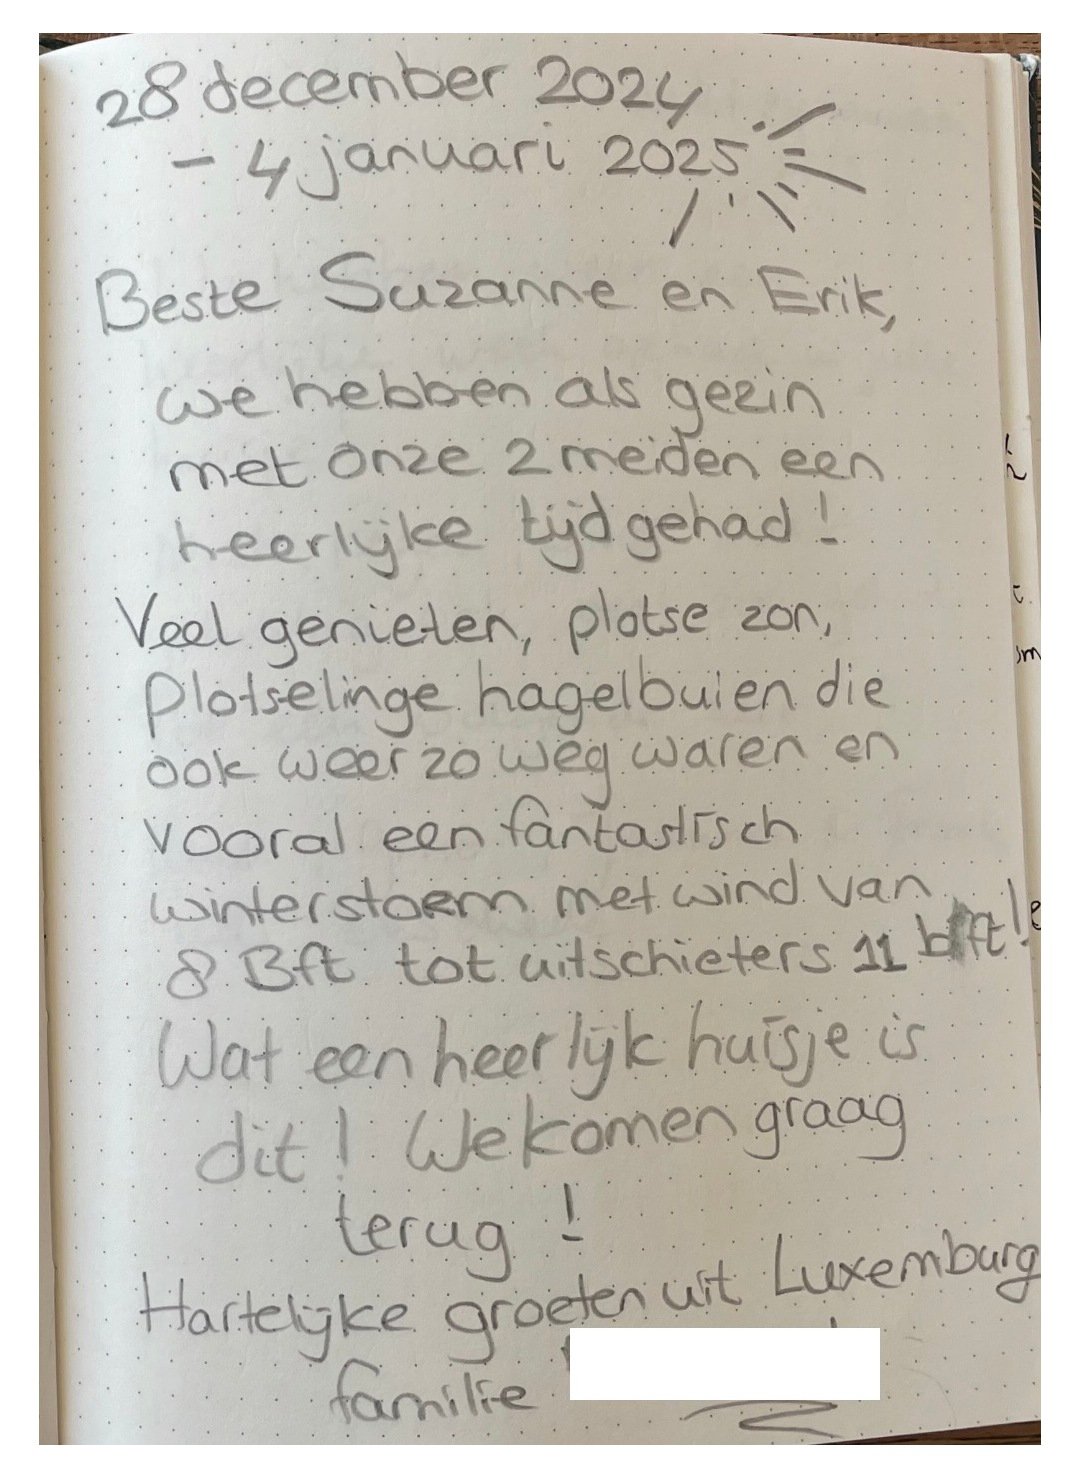 28 december 2024
- 4 januari 2025
Beste Suzanne en Erik,
we hebben als gezin
met onze 2 meiden een
heerlijke tijd gehad!
Veel genieten, plotse zon,
Plotselinge hagelbuien die
ook weer zo weg waren en
vooral een fantastisch
winterstorm met wind van
8 Bft tot uitschieters 11 bft!
Wat een heerlijk huisje is
dit! We komen graag
terug!
Hartelijke groeten uit Luxemburg
familie